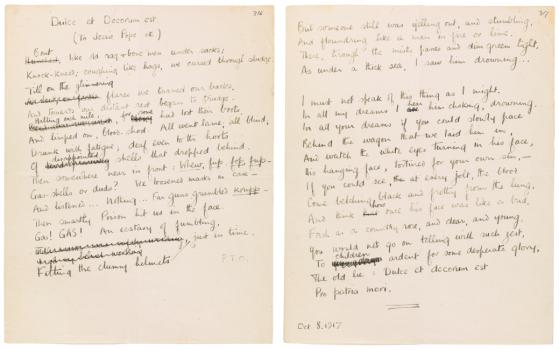 Dulce et Decorum est.
(To Jessie Pope etc.)
Bent
Hunched, like old rag & bone men under sacks,
Knock-kneed, coughing like hags, we cursed through sludge,
Till on the glimmering
flares we turned our backs,
And towards our distant rest began to trudge.
Halting each mile, for some
had lost their boots,
And limped on, blood-shod. All went lame, all blind;
Drunk with fatigue, deaf even to the hoots
disappointed
Of shells that dropped behind.
Then somewhere near in front: Whew, fup, fop, fup,
Gas-shells or duds? We loosened masks in case —
And listened... Nothing... Far guns grumbled Krupp —
Then smartly Poison hit us in the face.
Gas! GAS! An ecstasy of fumbling,
just in time.
Fitting the clumsy helmets
P.T.O.
317
But someone still was yelling out, and stumbling,
And floundering like a man in fire or lime.
There, through the misty panes and dim green light,
As under a thick sea, I saw him drowning...
I must not speak of this thing as I might.
In all my dreams I hear him choking, drowning.
In all your dreams if you could slowly pace
Behind the wagon that we laid him in,
And watch the white eyes turning in his face,
His hanging face, tortured for your own sin, —
If you could see, at every jolt, the blood
Come belching black and frothy from the lung,
how
And think his face was like a bud,
Fresh as a country rose, and clear, and young,
You would not go on telling with such zest,
children
To ardent for some desperate glory,
The old lie: Dulce et decorum est
Pro patria mori.
Oct 8. 1917